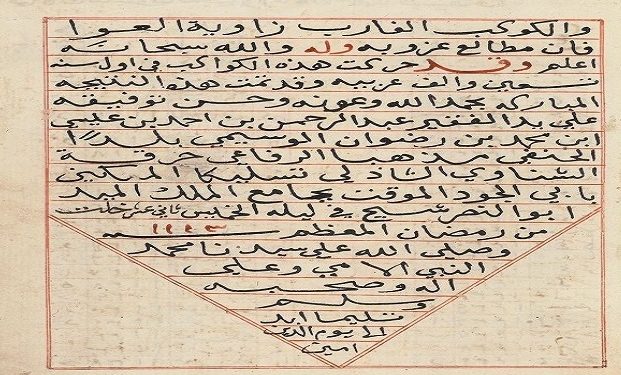 والكوكب الغارب زاوية العوا
فان مطالع غروبه وله والله سبحانه
اعلم وقد حركت هذه الكواكب في اول سنه
تسعين والف عربيه وقد تمت هذه النتيجه
المباركه بحمد الله وعونه وحسن توفيقه
علي يد الفقير عبد الرحمن بن احمد بن علي
ابن محمد بن رضوان الوسيمي بلدًا
الحنفي مذهبا الرفاعي خرقة
الشناوي الشاذلي تسليكا المكني
بابي الجود الموقت بجامع الملك المويد
ابو النصر شيخ في ليله الخميس ثاني عشر خلت
من رمضان المعظم سنه ١١٤٣
وصلي الله علي سيدنا محمد
النبي الامي وعلي
اله وصحبه
وسلم
تسليما ابد
الا يوم الدين
امين